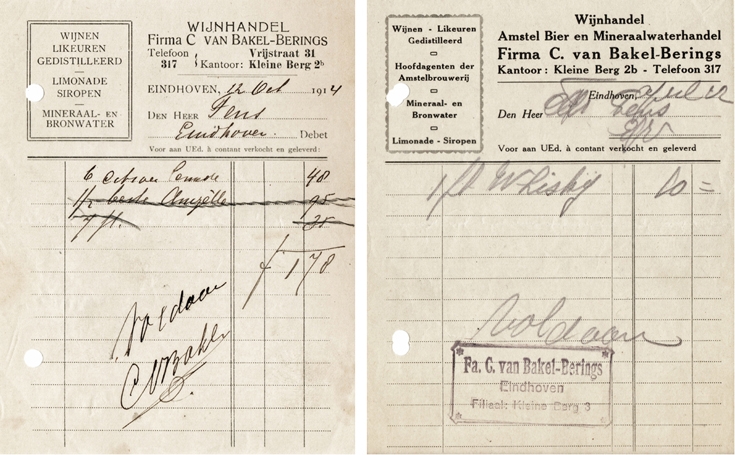 WIJNEN
LIKEUREN
GEDISTILLEERD
LIMONADE
SIROPEN
MINERAAL- EN
BRONWATER
WIJNHANDEL
Firma C. VAN BAKEL-BERINGS
Telefoon 317
Vrijstraat 31
Kantoor: Kleine Berg 2b
EINDHOVEN, 12 Oct 1914
DEN HEER Fens
Eindhoven Debet
Voor aan UEd. à contant verkocht en geleverd:
6 citroen 48
1/2 beste 95
7 fl. 35
f 1 78
Voldaan
C V Bakel
Wijnen - Likeuren
Gedistilleerd
Hoofdagenten der
Amstelbrouwerij
Mineraal- en
Bronwater
Limonade - Siropen
Wijnhandel
Amstel Bier en Mineraalwaterhandel
Firma C. van Bakel-Berings
Kantoor: Kleine Berg 2b - Telefoon 317
Eindhoven,
Den Heer Fens
Voor aan UEd. à contant verkocht en geleverd:
1 fl Whisky 10 =
Voldaan
Fa. C. van Bakel-Berings
Eindhoven
Filiaal: Kleine Berg 3